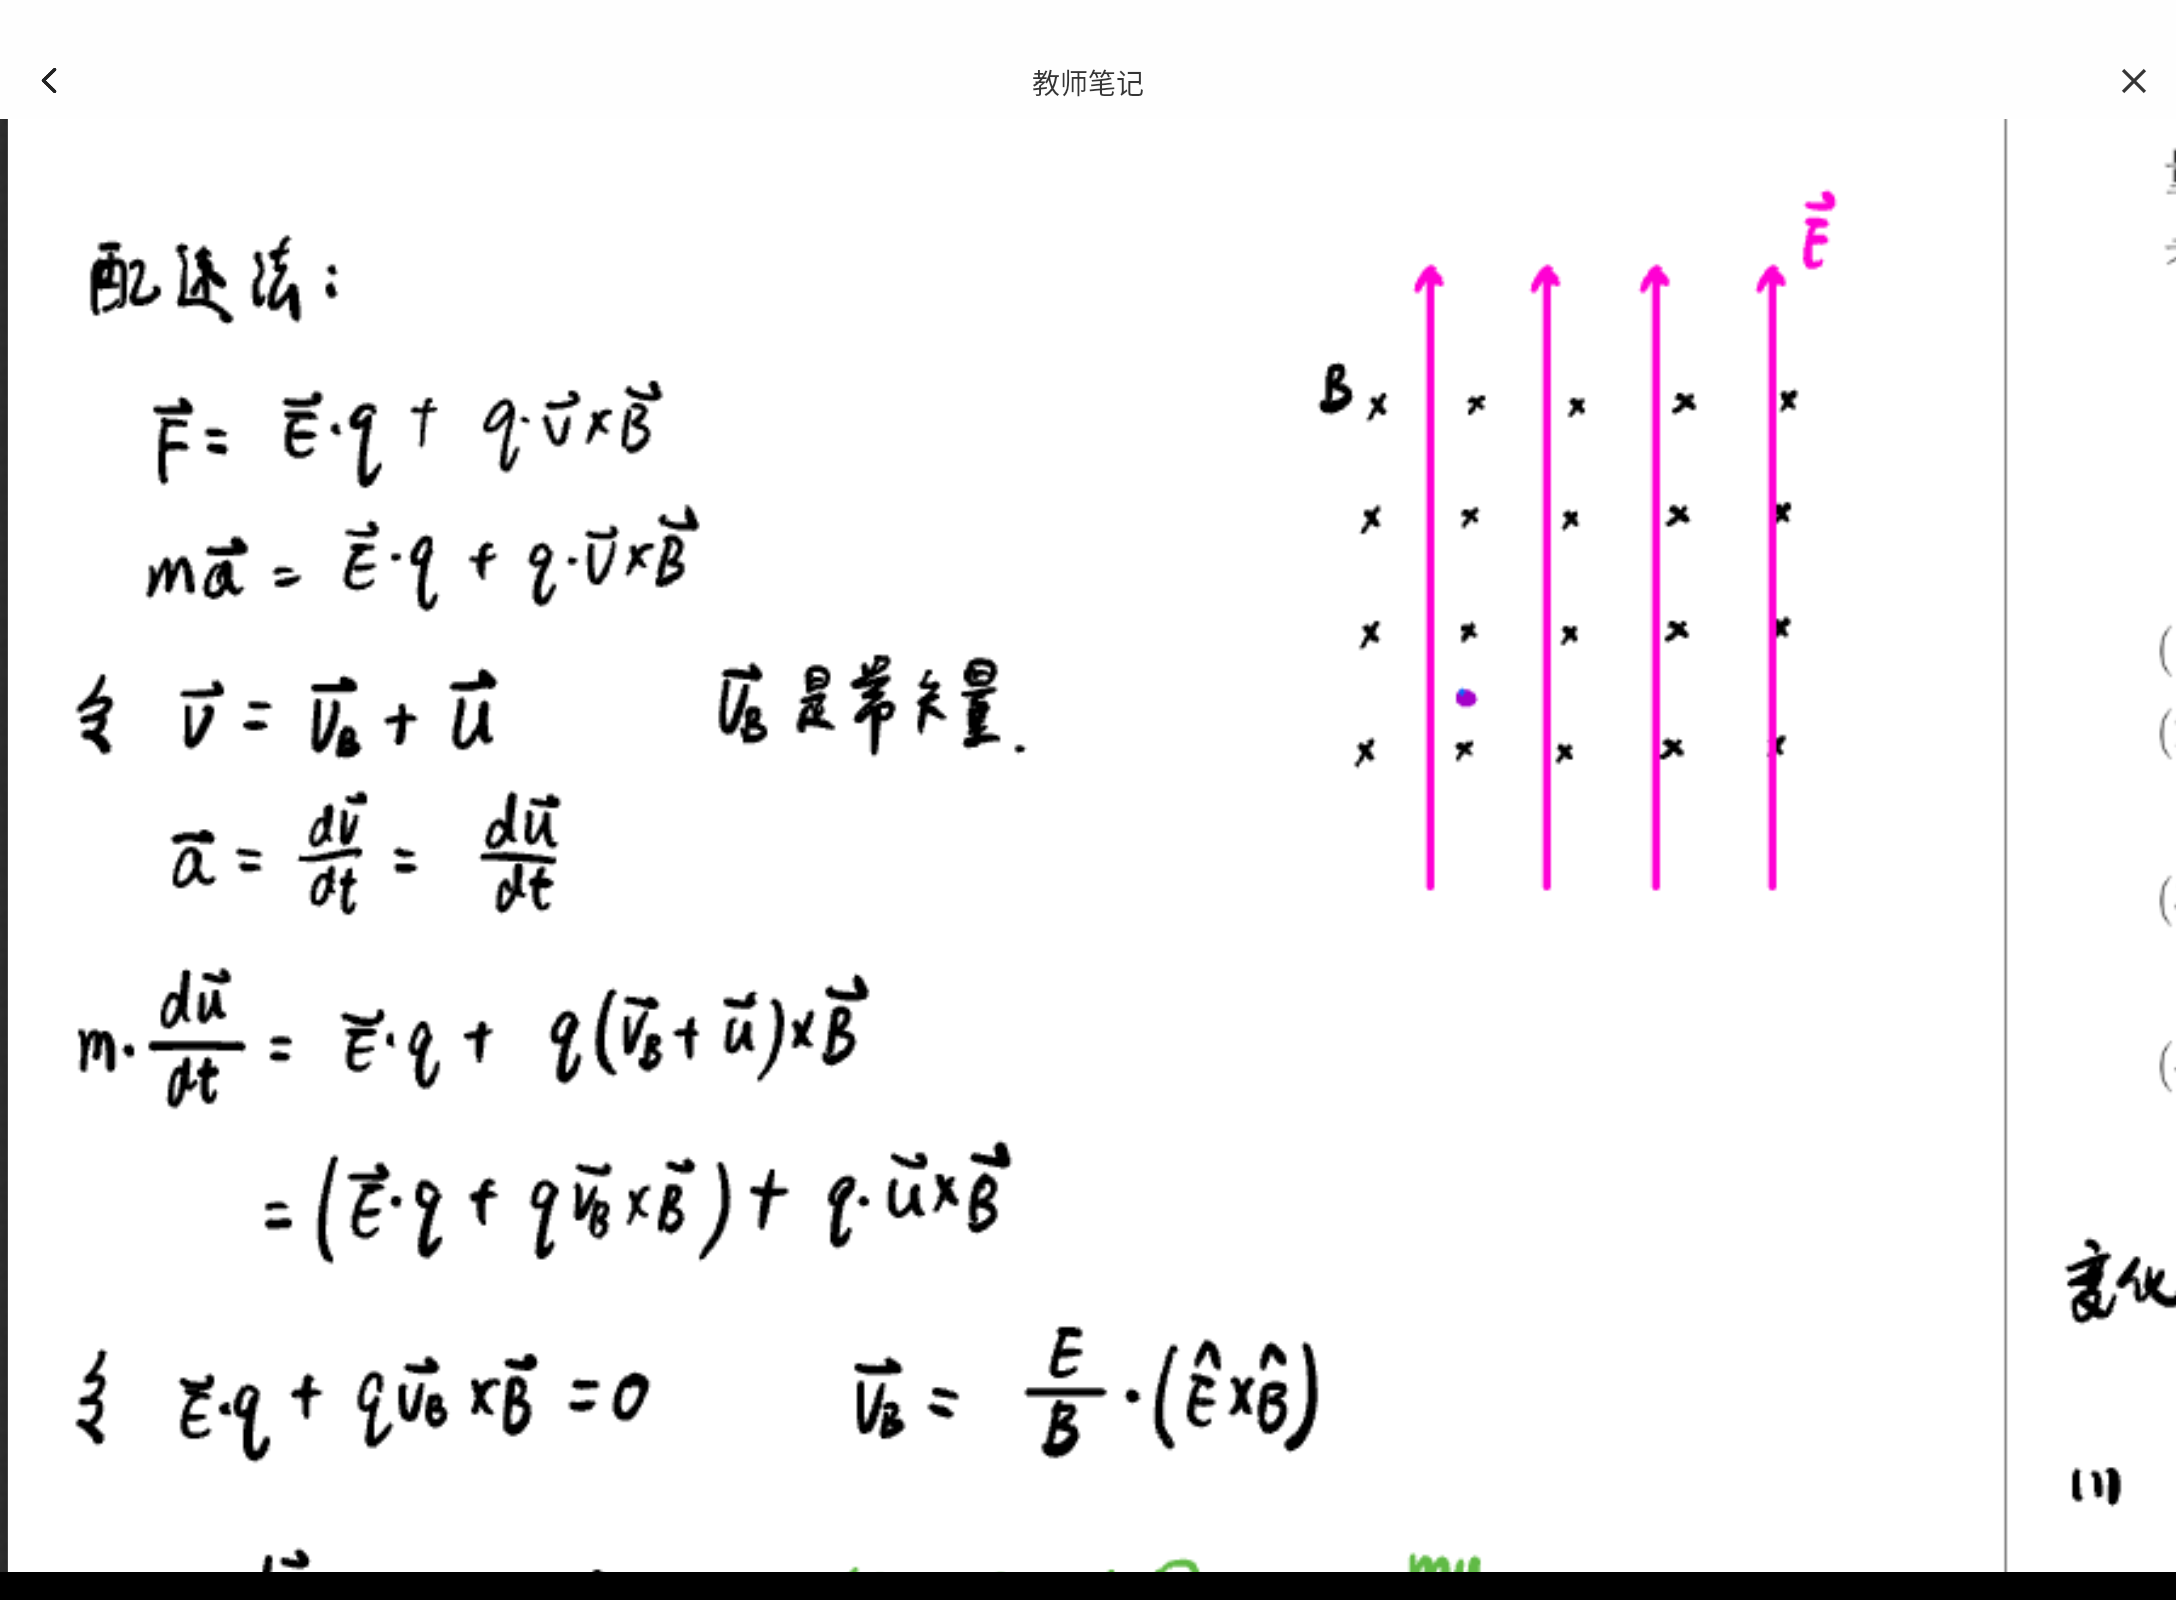 教师笔记
配速法：
F⃗ = E⃗·q + q·v⃗×B⃗
ma⃗ = E⃗·q + q·v⃗×B⃗
令 v⃗ = v⃗_B + u⃗ v⃗_B 是常矢量.
a⃗ = dv⃗/dt = du⃗/dt
m·du⃗/dt = E⃗·q + q(v⃗_B + u⃗)×B⃗
= (E⃗·q + qv⃗_B×B⃗) + q·u⃗×B⃗
令 E⃗·q + qv⃗_B×B⃗ = 0 v⃗_B = E/B·(Ê×B̂)
E⃗
B
变化
(1)